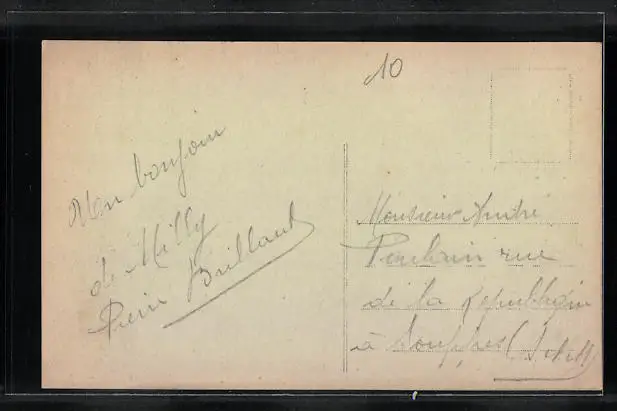 10
Mon bonjour
de Milly
Pierre Baillaud
Monsieur André
Poulain rue
de la République
à Souppes (S et M)